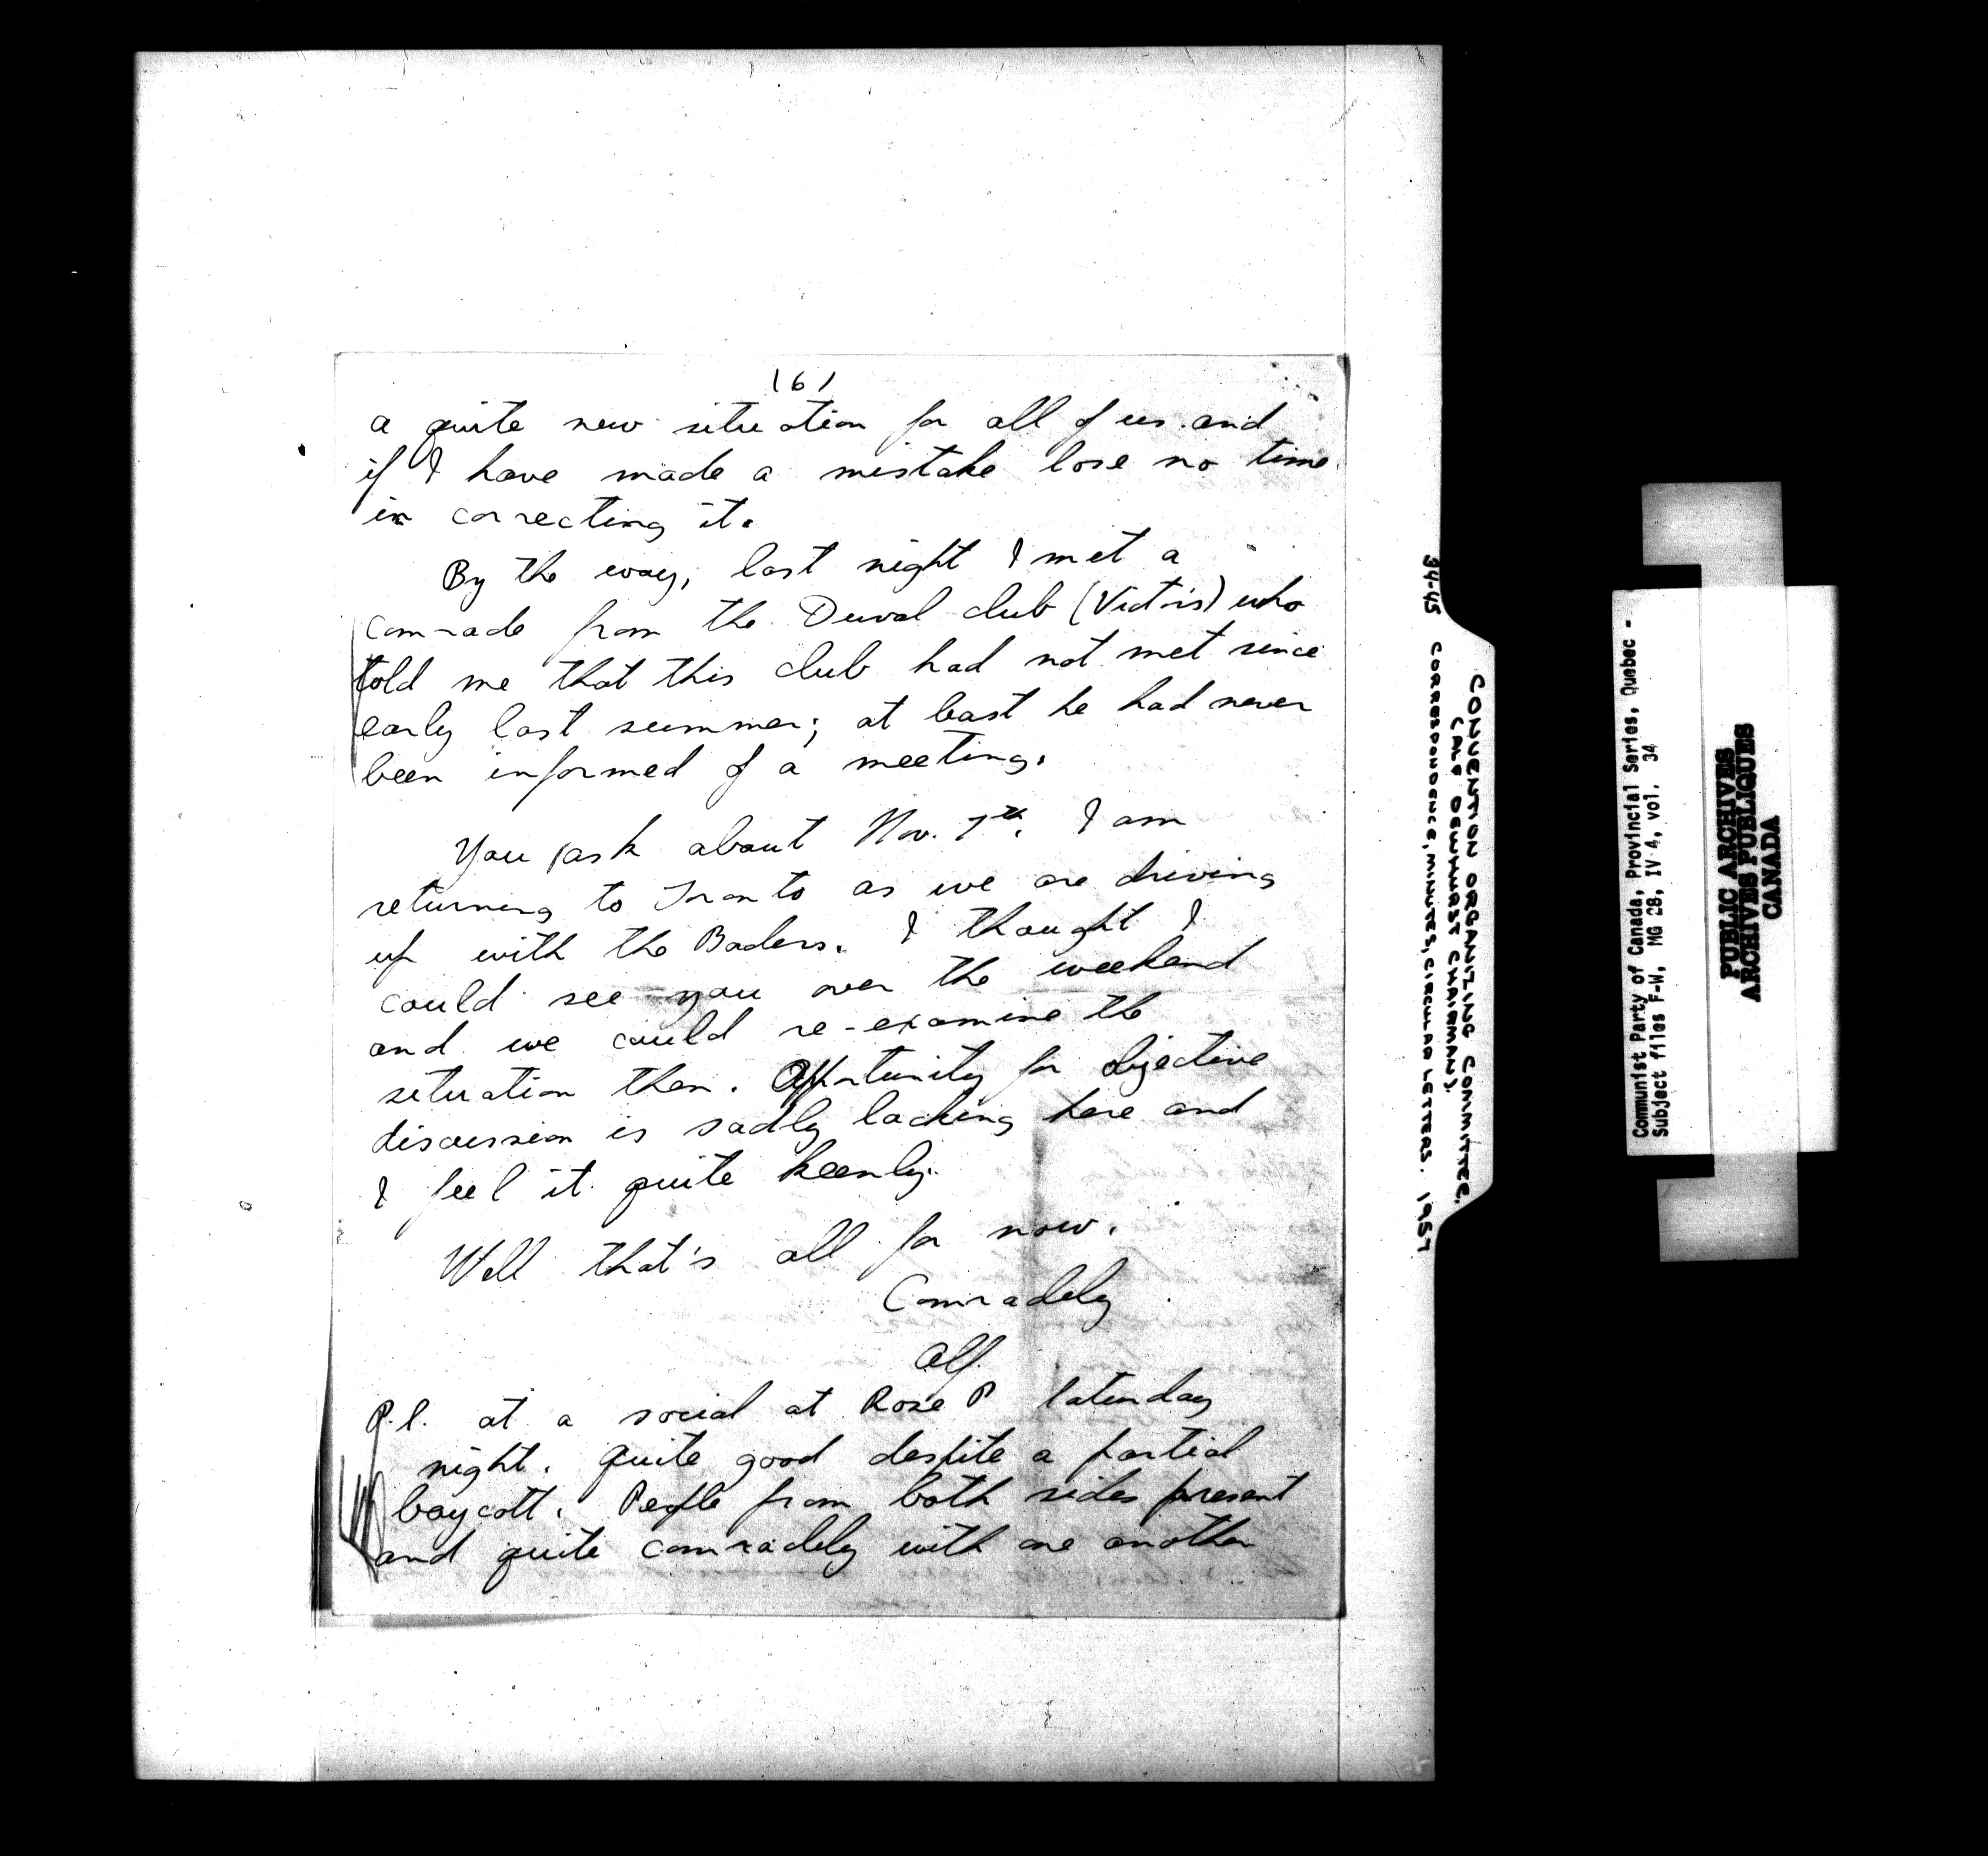 161
a quite new situation for all of us and
if I have made a mistake lose no time
in correcting it.
By the way, last night I met a
comrade from the Duval club (Victor's) who
told me that this club had not met since
early last summer; at least he had never
been informed of a meeting.
You ask about Nov. 7th. I am
returning to Toronto as we are driving
up with the Baders. I thought I
could see you over the weekend
and we could re-examine the
situation then. Opportunity for objective
discussion is sadly lacking here and
I feel it quite keenly.
Well that's all for now.
Comradely
Alf.
P.S. at a social at Rose P Saturday
night. quite good despite a partial
boycott. People from both sides present
and quite comradely with one another
CONVENTION ORGANIZING COMMITTEE.
(ALF DEWHURST CHAIRMAN).
34-45 CORRESPONDENCE, MINUTES, CIRCULAR LETTERS. 1957
Communist Party of Canada, Provincial Series, Quebec -
Subject files F-W, MG 28, IV 4, vol. 34
PUBLIC ARCHIVES
ARCHIVES PUBLIQUES
CANADA